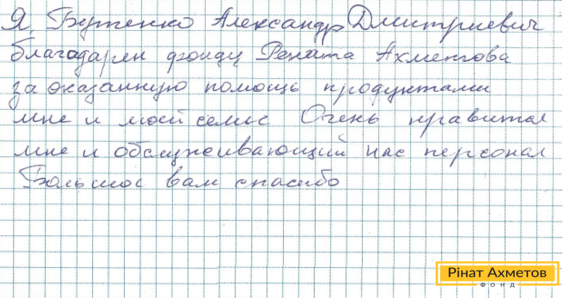 Я Бутенко Александр Дмитриевич
благодарен фонду Рената Ахметова
за оказанную помощь продуктами
мне и моей семье Очень нравится
мне и обслуживающий нас персонал
Большое вам спасибо
Рінат Ахметов
ФОНД